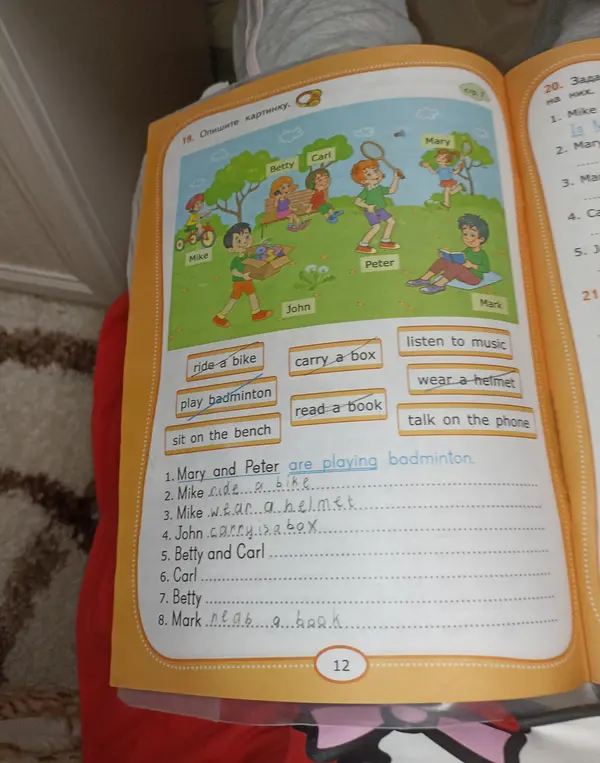 19. Опишите картинку.
стр. 7
Betty
Carl
Mary
Mike
Peter
John
Mark
ride a bike
carry a box
listen to music
play badminton
read a book
wear a helmet
sit on the bench
talk on the phone
1. Mary and Peter are playing badminton.
2. Mike ride a bike
3. Mike wear a helmet
4. John carry is a box
5. Betty and Carl
6. Carl
7. Betty
8. Mark reab a book
12
20. Зада
на них.
1. Mike
Is M
2. Mary
3. Ma
4. Ca
5. J
21